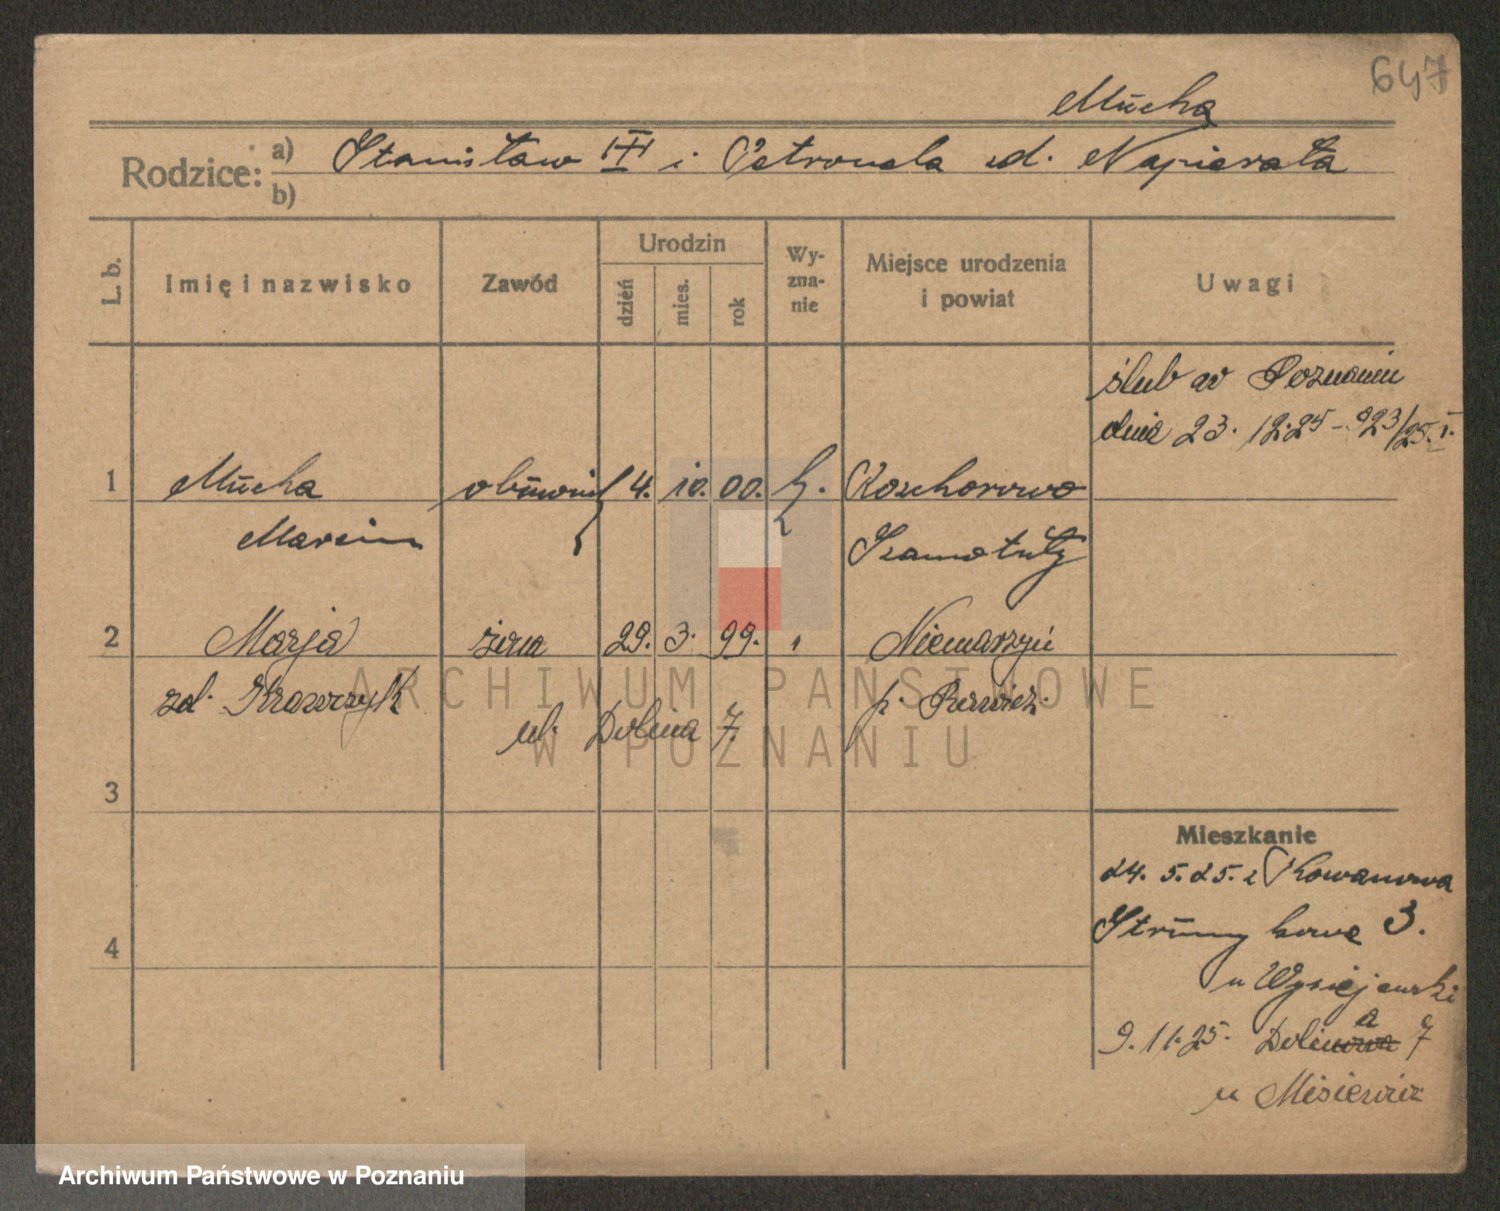 647
Mucha
Rodzice: a) Stanisław III i Petronela zd. Napierała
b)
L. b.
Imię i nazwisko
Zawód
Urodzin
dzień
mies.
rok
Wy-
zna-
nie
Miejsce urodzenia
i powiat
Uwagi
ślub w Poznaniu
dnia 23. 12.25 - 923/25. I.
1 Mucha obuwnik 4. 10. 00. k.
Marcin Szamotuły
2 Marja żona 29. 3. 99. "
zd. Krawczyk p.
ul. Dolina 7.
3
4
Mieszkanie
24. 5. 25. z Kowanowa
3.
u
9. 11. 25. Dolina 7
u Misiewicz
ARCHIWUM PAŃSTWOWE
W POZNANIU
Archiwum Państwowe w Poznaniu